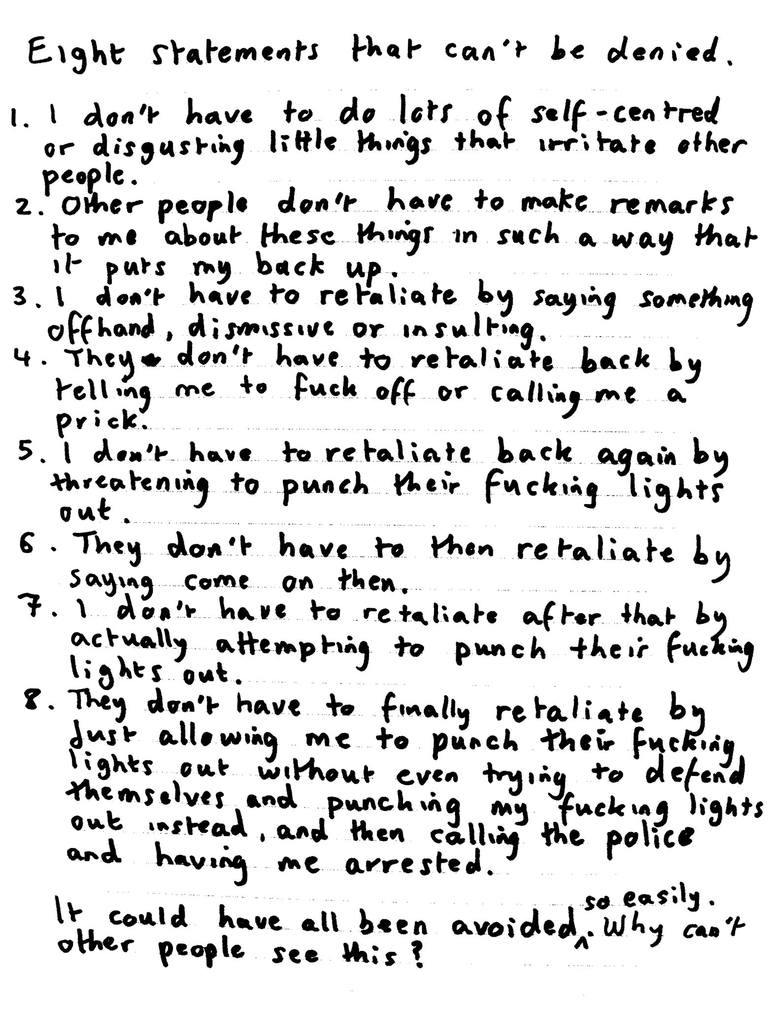 Eight statements that can't be denied.
1. I don't have to do lots of self-centred
or disgusting little things that irritate other
people.
2. Other people don't have to make remarks
to me about these things in such a way that
it puts my back up.
3. I don't have to retaliate by saying something
offhand, dismissive or insulting.
4. They don't have to retaliate back by
telling me to fuck off or calling me a
prick.
5. I don't have to retaliate back again by
threatening to punch their fucking lights
out.
6. They don't have to then retaliate by
saying come on then.
7. I don't have to retaliate after that by
actually attempting to punch their fucking
lights out.
8. They don't have to finally retaliate by
just allowing me to punch their fucking
lights out without even trying to defend
themselves and punching my fucking lights
out instead, and then calling the police
and having me arrested.
so easily.
It could have all been avoided ^. Why can't
other people see this?